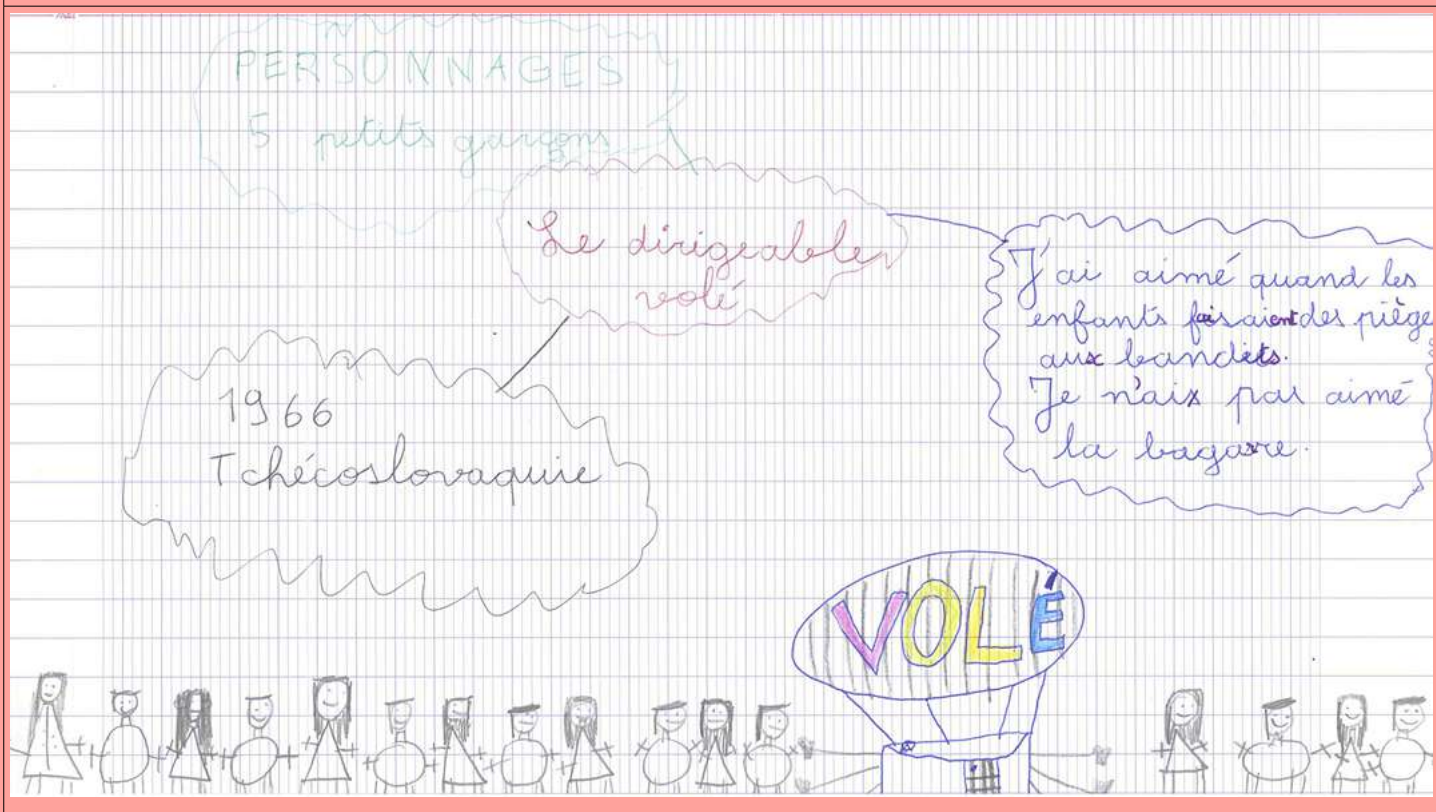 PERSONNAGES
5 petits garçons
Le dirigeable
volé
J'ai aimé quand les
enfants faisaient des piège
aux bandits.
Je n'aix pas aimé
la bagarre.
1966
Tchécoslovaquie
VOLÉ